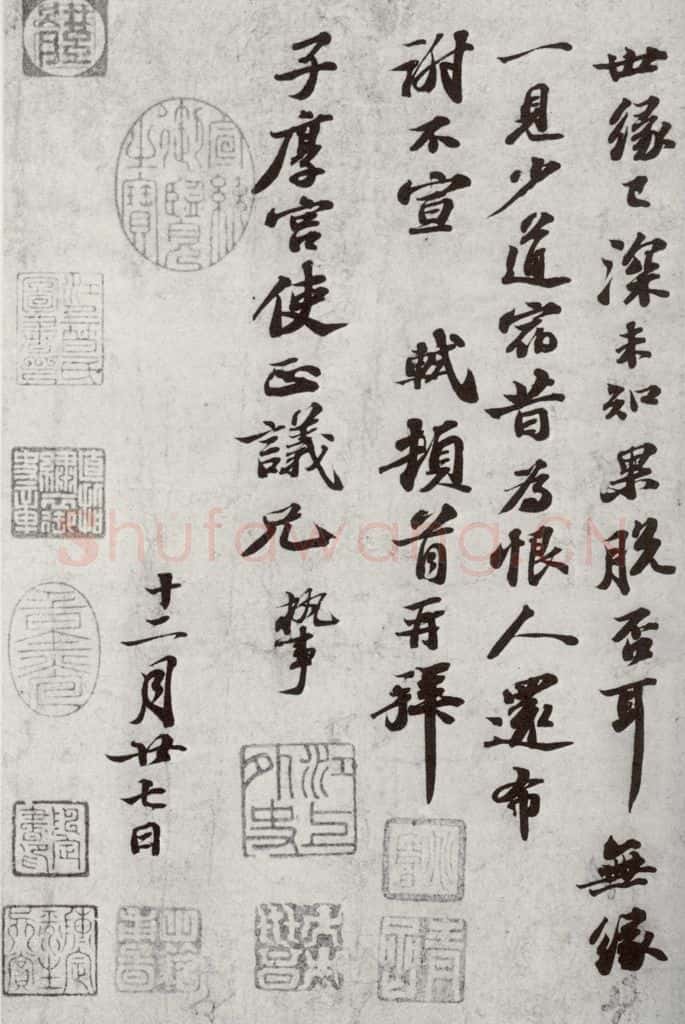 世緣已深未知果脫否耳無緣
一見少道宿昔為恨人還布
謝不宣 軾頓首再拜
子厚宮使正議兄 執事
十二月廿七日
宣統御覽之寶
江上外史
Shufawang.CN